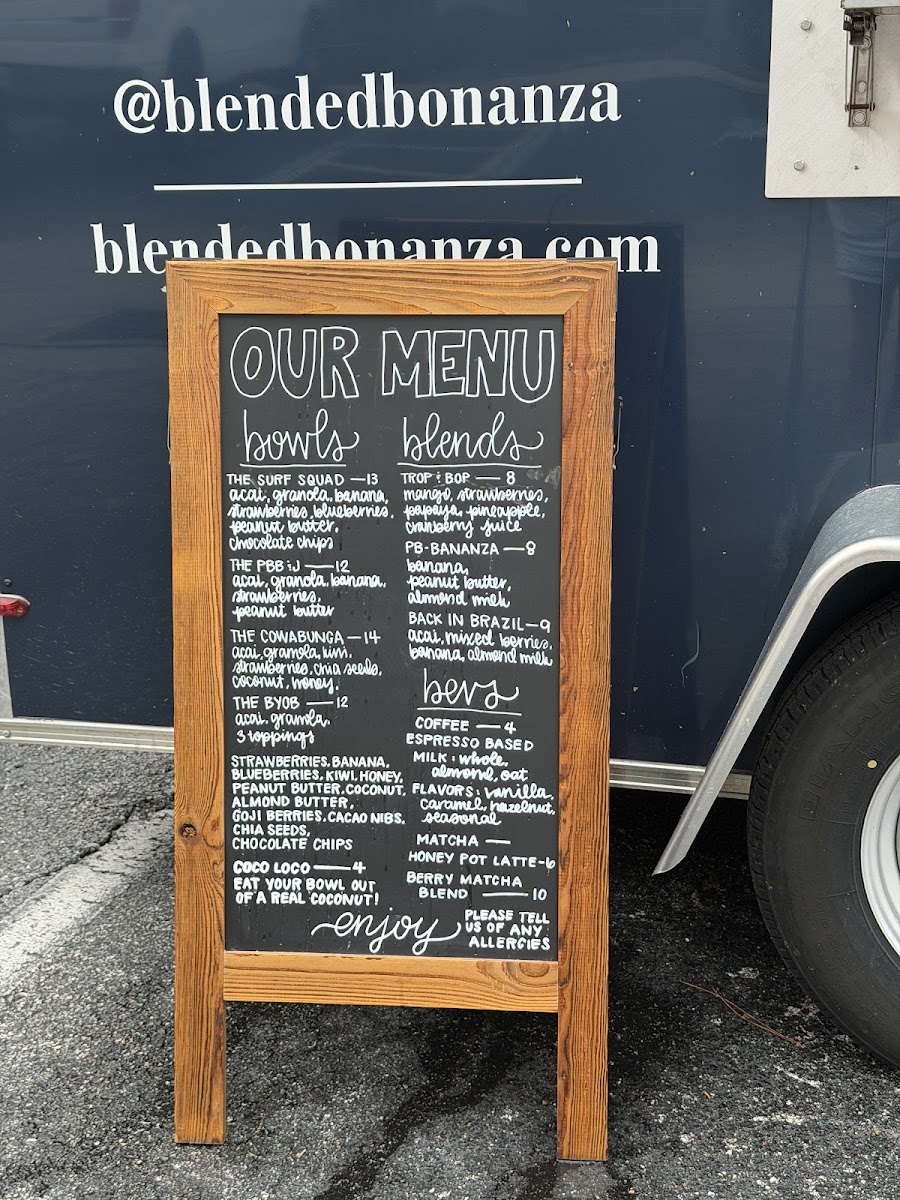 @blendedbonanza
blendedbonanza.com
OUR MENU
bowls
THE SURF SQUAD — 13
acai, granola, banana,
strawberries, blueberries,
peanut butter,
chocolate chips
THE PBB & J — 12
acai, granola, banana,
strawberries,
peanut butter
THE COWABUNGA — 14
acai, granola, kiwi,
strawberries, chia seeds,
coconut, honey
THE BYOB — 12
acai, granola,
3 toppings
STRAWBERRIES, BANANA,
BLUEBERRIES, KIWI, HONEY,
PEANUT BUTTER, COCONUT,
ALMOND BUTTER,
GOJI BERRIES, CACAO NIBS,
CHIA SEEDS,
CHOCOLATE CHIPS
COCO LOCO — 4
EAT YOUR BOWL OUT
OF A REAL COCONUT!
blends
TROP & BOP — 8
mango, strawberries,
papaya, pineapple,
cranberry juice
PB-BANANZA — 8
banana,
peanut butter,
almond milk
BACK IN BRAZIL — 9
acai, mixed berries,
banana, almond milk
bevs
COFFEE — 4
ESPRESSO BASED
MILK: whole,
almond, oat
FLAVORS: vanilla,
caramel, hazelnut,
seasonal
MATCHA —
HONEY POT LATTE - 6
BERRY MATCHA
BLEND — 10
enjoy
PLEASE TELL
US OF ANY
ALLERGIES